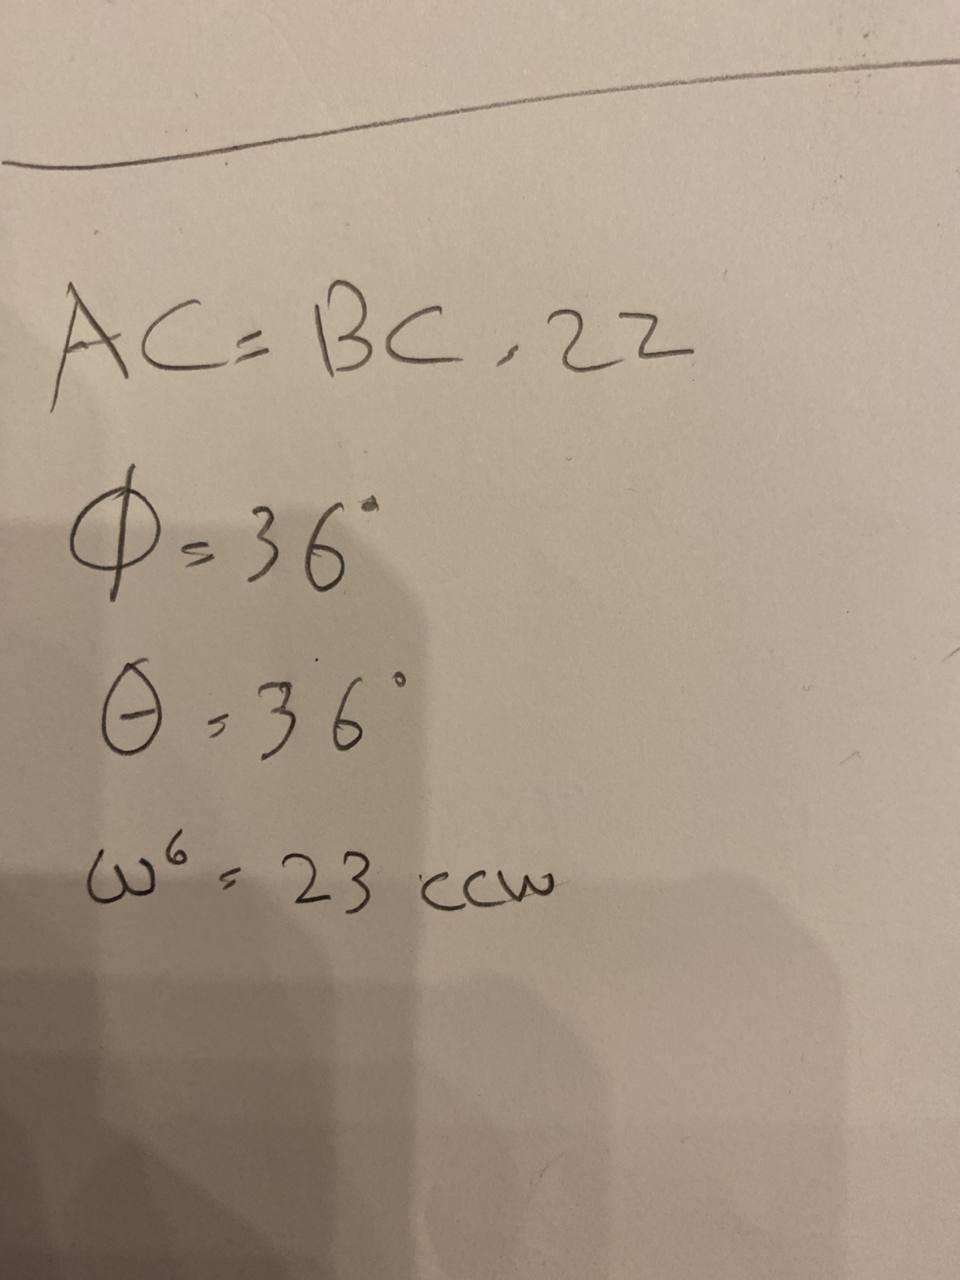 AC = BC = 22
Φ = 36°
θ = 36°
ω⁶ = 23 ccw